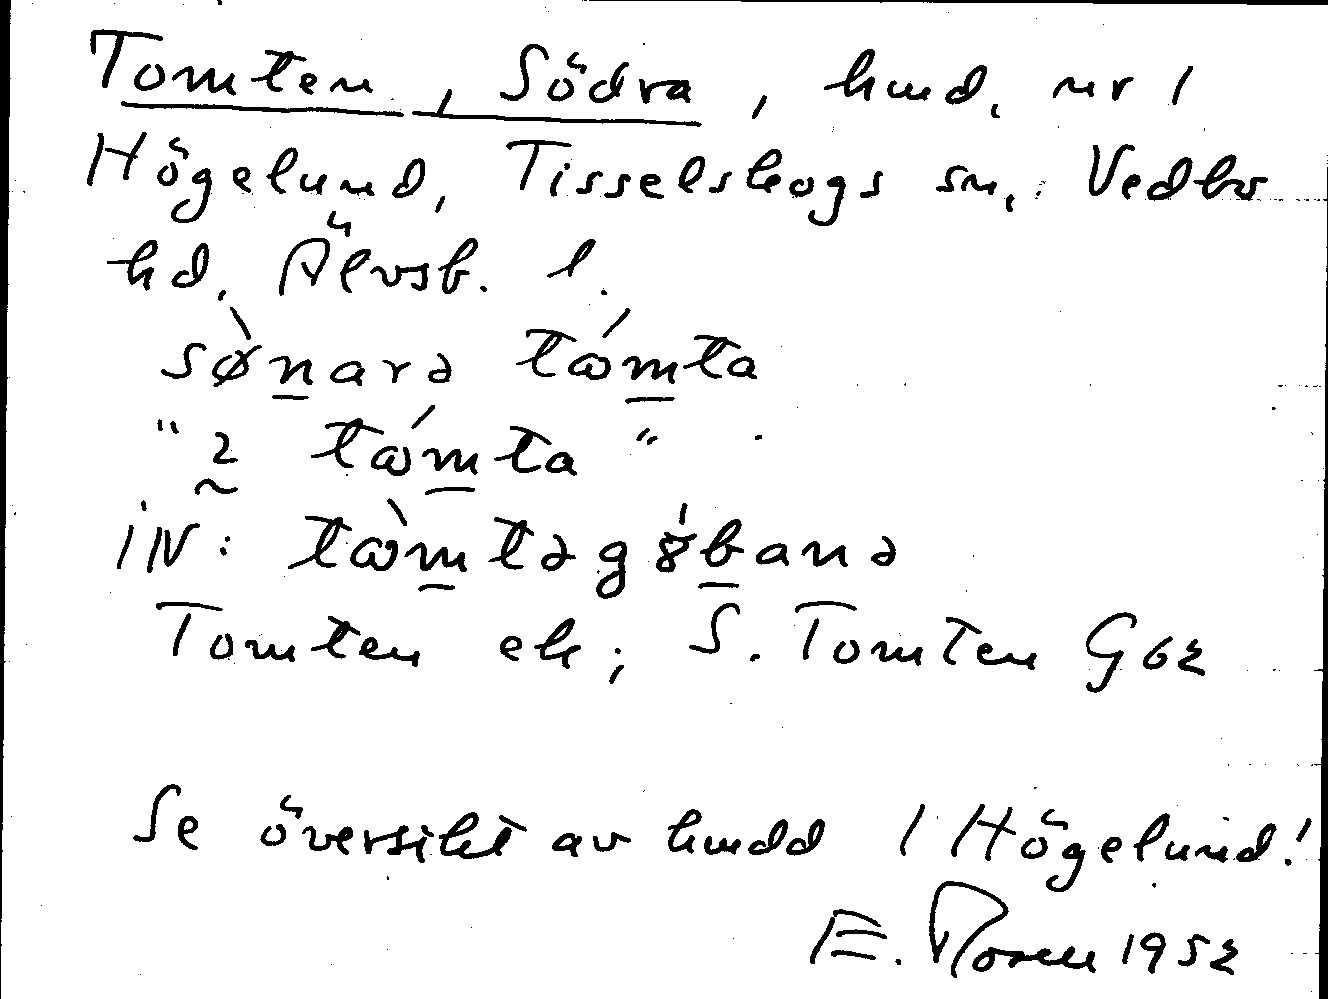 Tomten, Södra, hmd. nr 1
Högelund, Tisselskogs sn, Vedbo
hd, Älvsb. l.
sø̀narə tǿmta
" 2 tǿmta "
iN: tòmtəgȣ́banə
Tomten ek; S. Tomten G62
Se översikt av hmdd 1 Högelund!
E. Rosell 1952